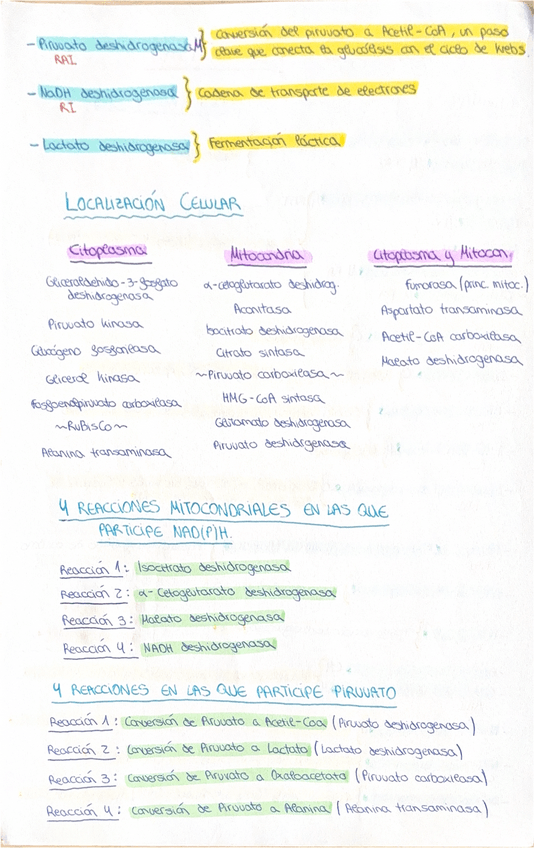 - Piruvato deshidrogenasa M } conversión del piruvato a Acetil-CoA, un paso
RAI clave que conecta la glucólisis con el ciclo de Krebs.
- NaDH deshidrogenasa } Cadena de transporte de electrones
RI
- Lactato deshidrogenasa } Fermentación láctica
LOCALIZACIÓN CELULAR
Citoplasma Mitocondria Citoplasma y Mitocon.
Gliceraldehido-3-fosfato α-cetoglutarato deshidrog. Fumarasa (princ. mitoc.)
deshidrogenasa Aconitasa Aspartato transaminasa
Piruvato kinasa Isocitrato deshidrogenasa Acetil-CoA carboxilasa
Glucógeno fosforilasa Citrato sintasa Malato deshidrogenasa
Glicerol kinasa ~Piruvato carboxilasa~
Fosfoenolpiruvato carboxilasa HMG-CoA sintasa
~RuBisCo~ Glutamato deshidrogenasa
Alanina transaminasa Piruvato deshidrgenasa
4 REACCIONES MITOCONDRIALES EN LAS QUE
PARTICIPE NAD(P)H.
Reacción 1: Isocitrato deshidrogenasa
Reacción 2: α-Cetoglutarato deshidrogenasa
Reacción 3: Malato deshidrogenasa
Reacción 4: NADH deshidrogenasa
4 REACCIONES EN LAS QUE PARTICIPE PIRUVATO
Reacción 1: Conversión de Piruvato a Acetil-Coa (Piruvato deshidrogenasa)
Reacción 2: Conversión de Piruvato a Lactato (Lactato deshidrogenasa)
Reacción 3: Conversión de Piruvato a Oxalacetato (Piruvato carboxilasa)
Reacción 4: Conversión de Piruvato a Alanina (Alanina transaminasa)